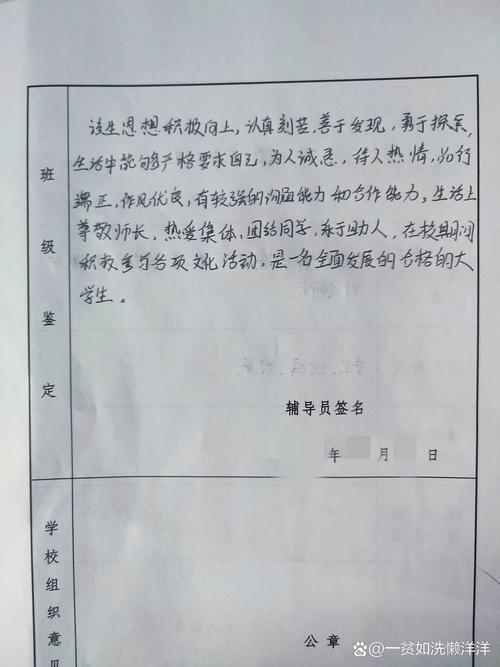 班级鉴定
该生思想积极向上，认真刻苦，善于发现，勇于探索，
生活中能够严格要求自己，为人诚恳，待人热情，品行
端正，作风优良，有较强的沟通能力和合作能力，生活上
尊敬师长，热爱集体，团结同学，乐于助人，在校期间
积极参与各项文化活动，是一名全面发展的合格的大
学生。
辅导员签名
年 月 日
学校组织意见
公章
@一贫如洗懒洋洋